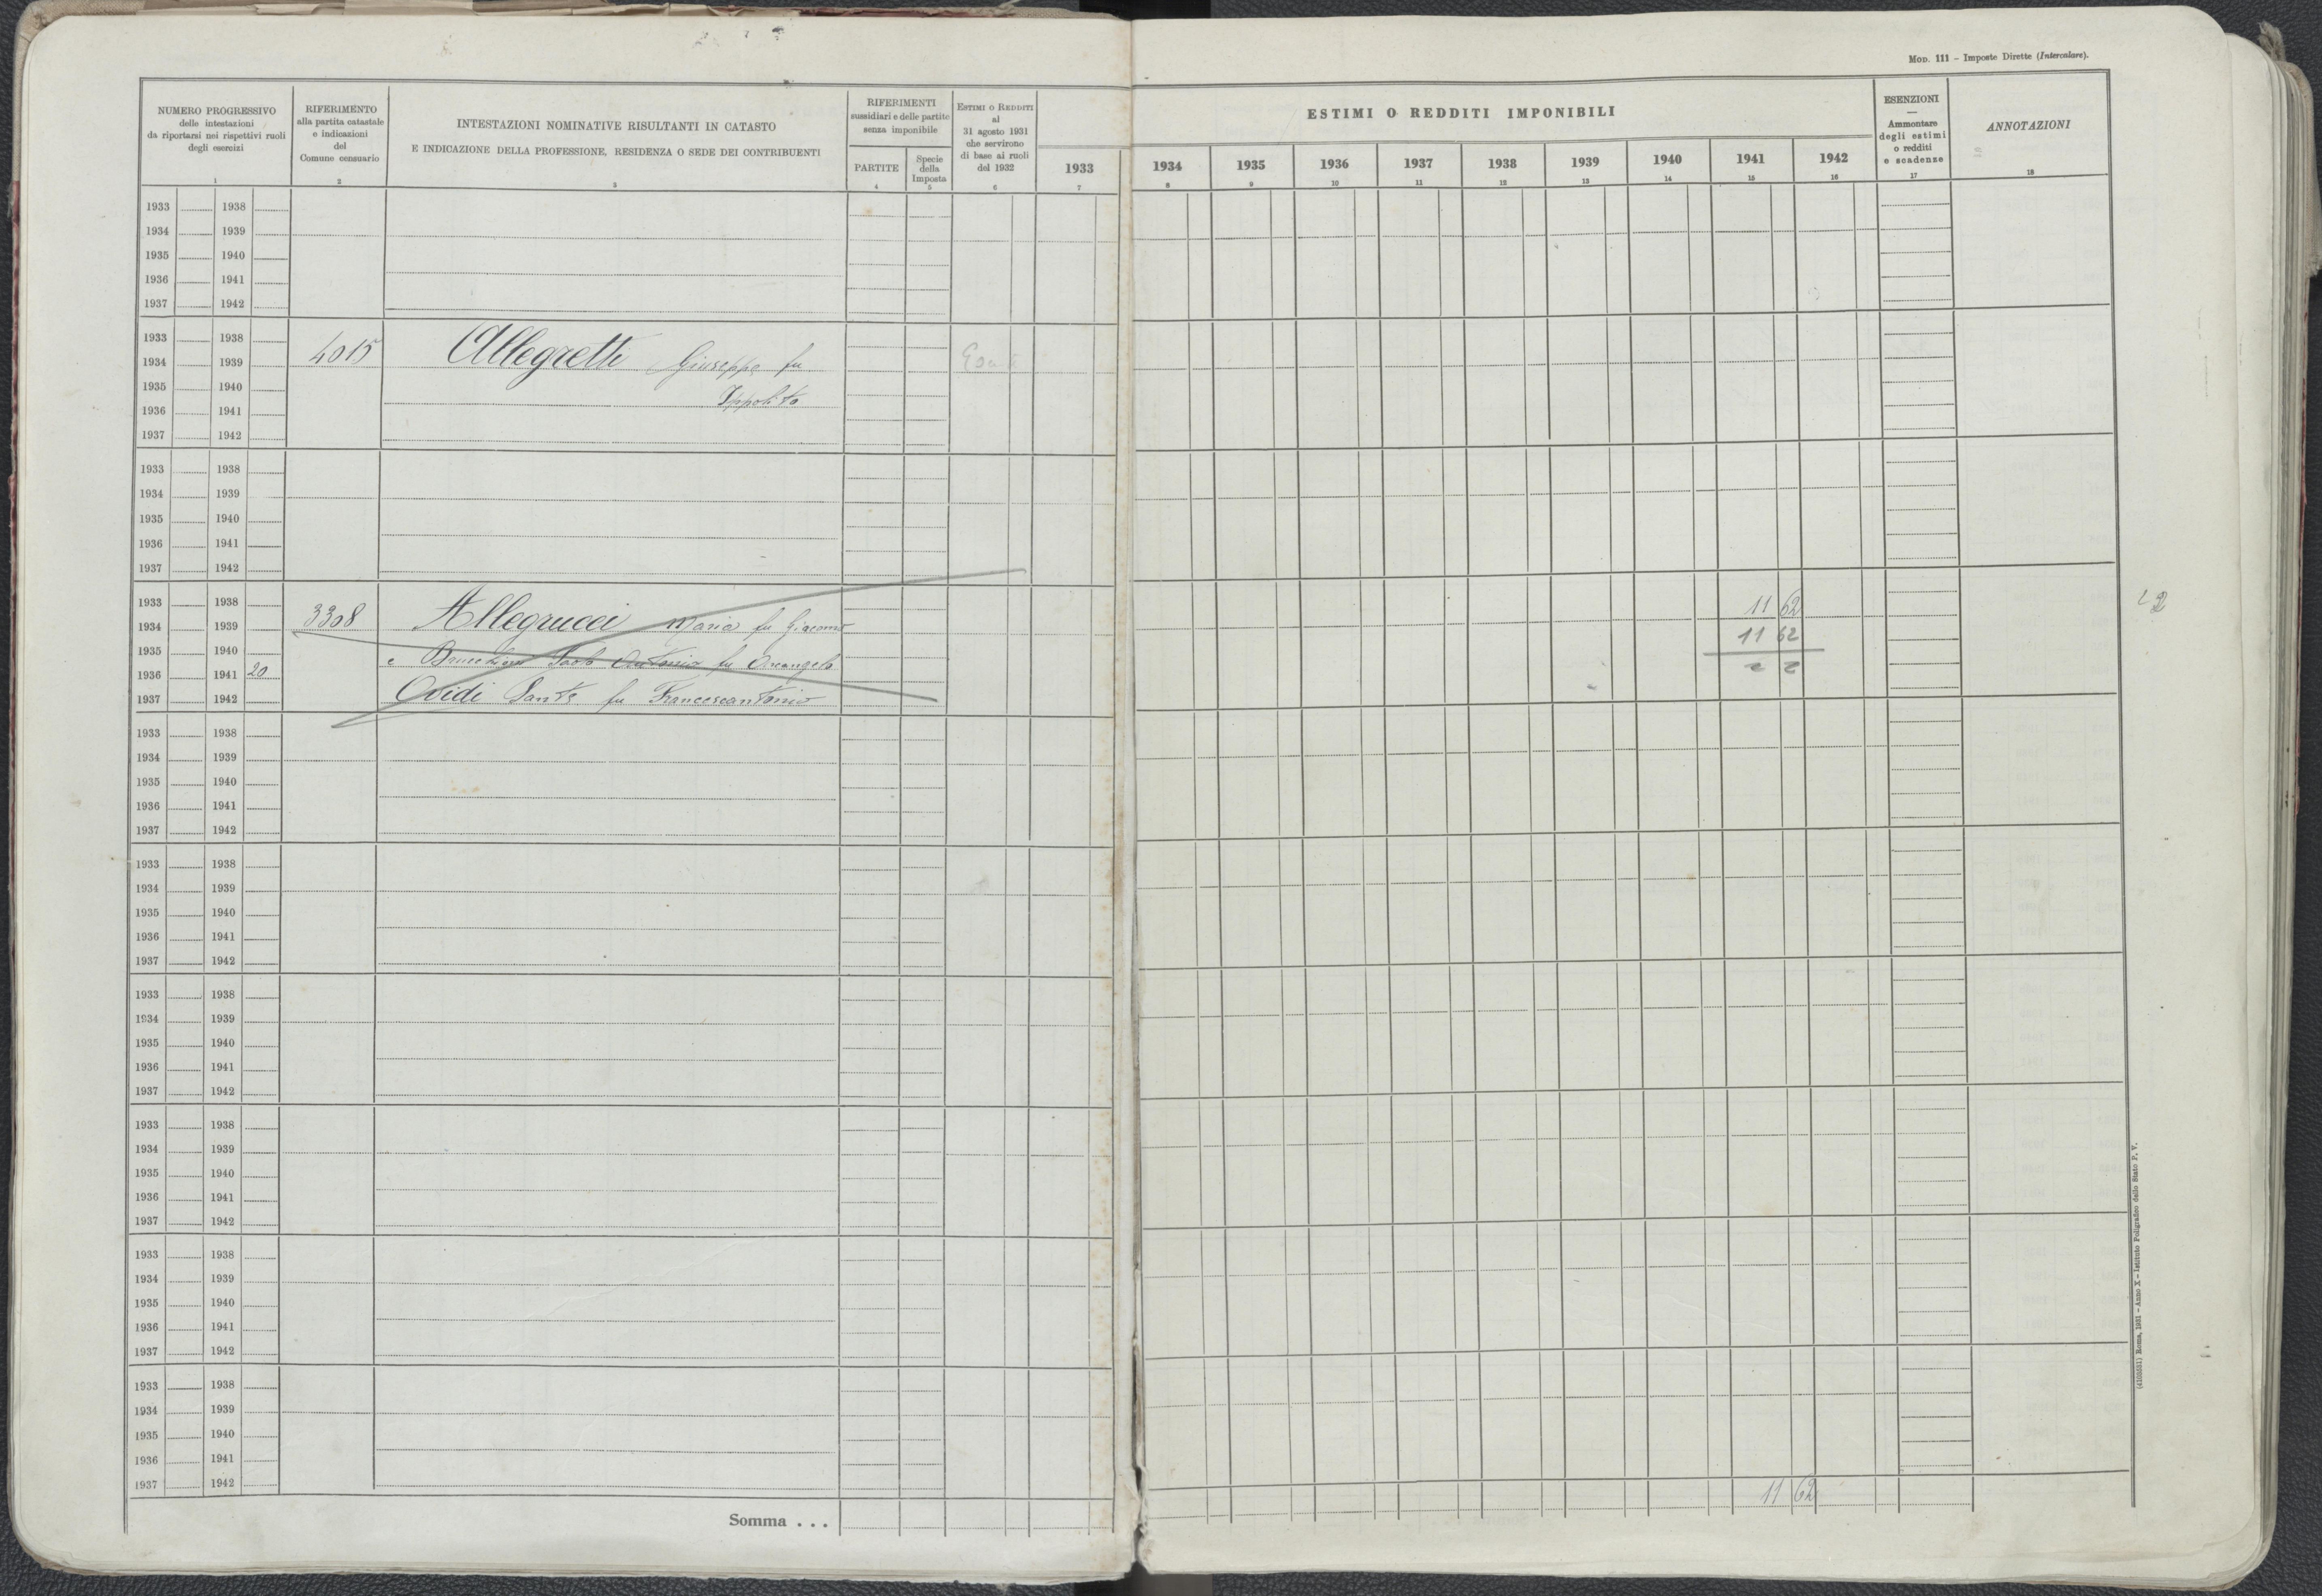 MOD. 111 – Imposte Dirette (Intercalare).
NUMERO PROGRESSIVO
delle intestazioni
da riportarsi nei rispettivi ruoli
degli esercizi
1
RIFERIMENTO
alla partita catastale
e indicazioni
del
Comune censuario
2
INTESTAZIONI NOMINATIVE RISULTANTI IN CATASTO
E INDICAZIONE DELLA PROFESSIONE, RESIDENZA O SEDE DEI CONTRIBUENTI
3
RIFERIMENTI
sussidiari e delle partite
senza imponibile
PARTITE
4
Specie
della
Imposta
5
ESTIMI O REDDITI
al
31 agosto 1931
che servirono
di base ai ruoli
del 1932
6
ESTIMI O REDDITI IMPONIBILI
1933 1934 1935 1936 1937 1938 1939 1940 1941 1942
7 8 9 10 11 12 13 14 15 16
ESENZIONI
—
Ammontare
degli estimi
o redditi
e scadenze
17
ANNOTAZIONI
18
1933 1938
1934 1939
1935 1940
1936 1941
1937 1942
1933 1938
4015 Allegretti Giuseppe fu
1934 1939
1935 1940
Ippolito
1936 1941
1937 1942
1933 1938
1934 1939
1935 1940
1936 1941
1937 1942
1933 1938 11 62
3308 Allegrucci Maria fu Giacomo
1934 1939 11 62
1935 1940
e Paolo Antonio fu Arcangelo
1936 1941 20
Ovidi Sante fu Francescantonio
1937 1942
1933 1938
1934 1939
1935 1940
1936 1941
1937 1942
1933 1938
1934 1939
1935 1940
1936 1941
1937 1942
1933 1938
1934 1939
1935 1940
1936 1941
1937 1942
1933 1938
1934 1939
1935 1940
1936 1941
1937 1942
1933 1938
1934 1939
1935 1940
1936 1941
1937 1942
1933 1938
1934 1939
1935 1940
1936 1941
1937 1942
Somma . . . 11 62
(4103631) Roma, 1931 – Anno X – Istituto Poligrafico dello Stato P. V.